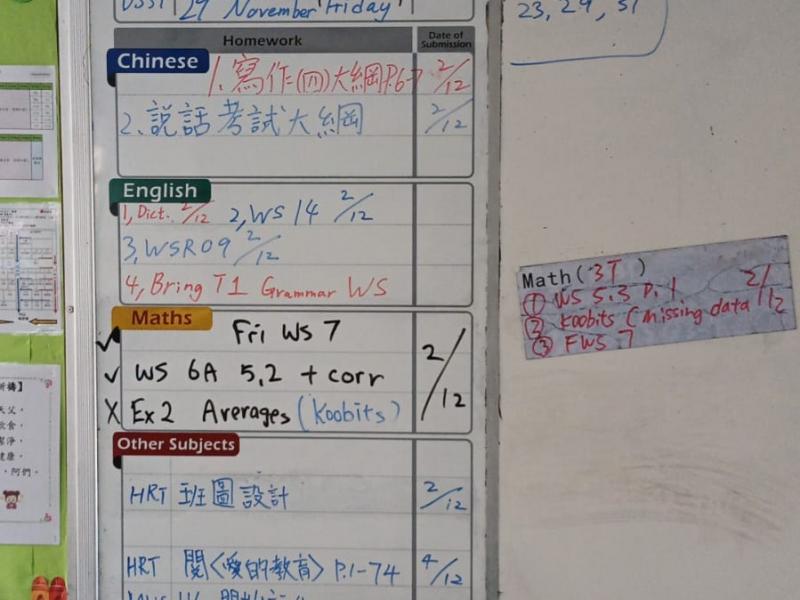 29 November Friday
23, 29, 31
Homework
Date of Submission
Chinese
1. 寫作(四)大綱P.6-7 2/12
2. 説話考試大綱 2/12
English
1, Dict. 2/12 2, WS 14 2/12
3, WSR09 2/12
4, Bring T1 Grammar WS
Maths
✓ Fri WS 7
✓ WS 6A 5.2 + corr 2/12
X Ex2 Averages (Koobits)
Math (3T)
① WS 5.3 P. 1
② Koobits (missing data 2/12
③ FWS 7
Other Subjects
HRT 班圖設計 2/12
HRT 閱〈愛的教育〉P.1-74 4/12
天父，
飲食，
潔淨，
健康，
阿們。